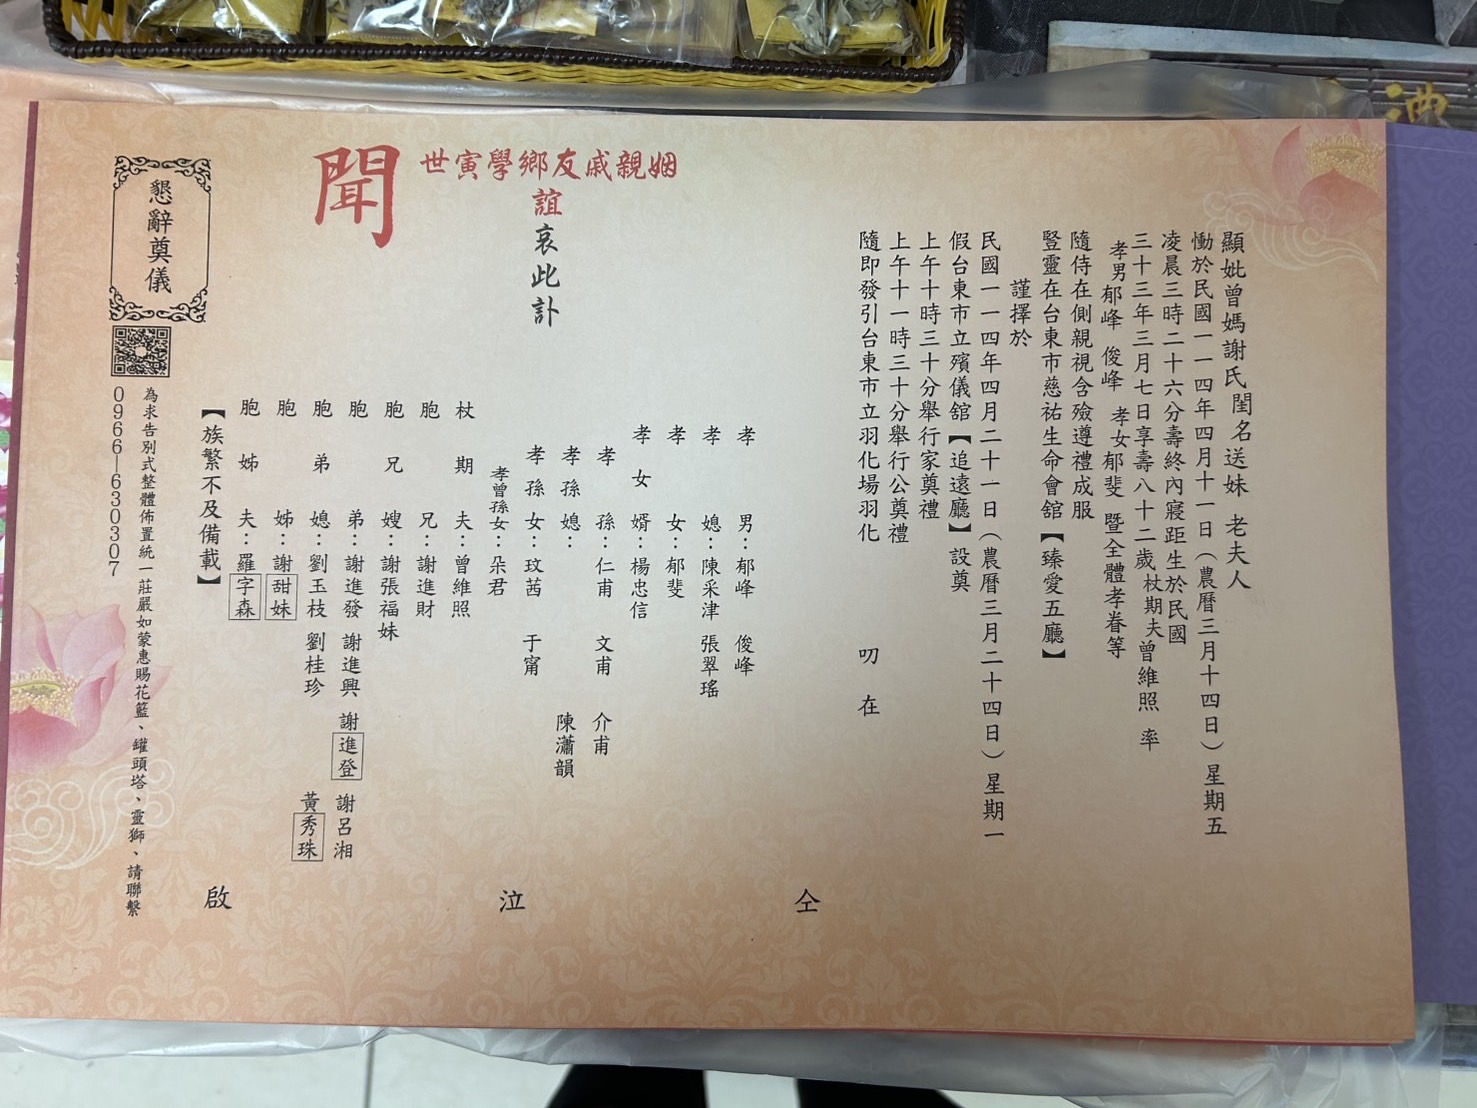 顯妣曾媽謝氏閨名送妹 老夫人
慟於民國一一四年四月十一日（農曆三月十四日）星期五
凌晨三時二十六分壽終內寢距生於民國
三十三年三月七日享壽八十二歲杖期夫曾維照 率
孝男郁峰 俊峰 孝女郁斐 暨全體孝眷等
隨侍在側親視含殮遵禮成服
豎靈在台東市慈祐生命會舘【臻愛五廳】
謹擇於
民國一一四年四月二十一日（農曆三月二十四日）星期一
假台東市立殯儀舘【追遠廳】設奠
上午十時三十分舉行家奠禮
上午十一時三十分舉行公奠禮
隨即發引台東市立羽化場羽化
叨 在
姻親戚友鄉學寅世
誼哀此訃
聞
孝 男：郁峰 俊峰
孝 媳：陳采津 張翠瑤
孝 女：郁斐
孝 女 婿：楊忠信
孝 孫：仁甫 文甫 介甫
孝 孫 媳： 陳瀟韻
孝 孫 女：玟茜 于甯
孝曾孫女：朵君
杖 期 夫：曾維照
胞 兄：謝進財
胞 兄 嫂：謝張福妹
胞 弟：謝進發 謝進興 謝進登 謝呂湘
胞 弟 媳：劉玉枝 劉桂珍 黃秀珠
胞 姊：謝甜妹
胞 姊 夫：羅字森
【族繁不及備載】
仝 泣 啟
懇辭奠儀
為求告別式整體佈置統一莊嚴如蒙惠賜花籃、罐頭塔、靈獅、請聯繫
0966-630307
酒